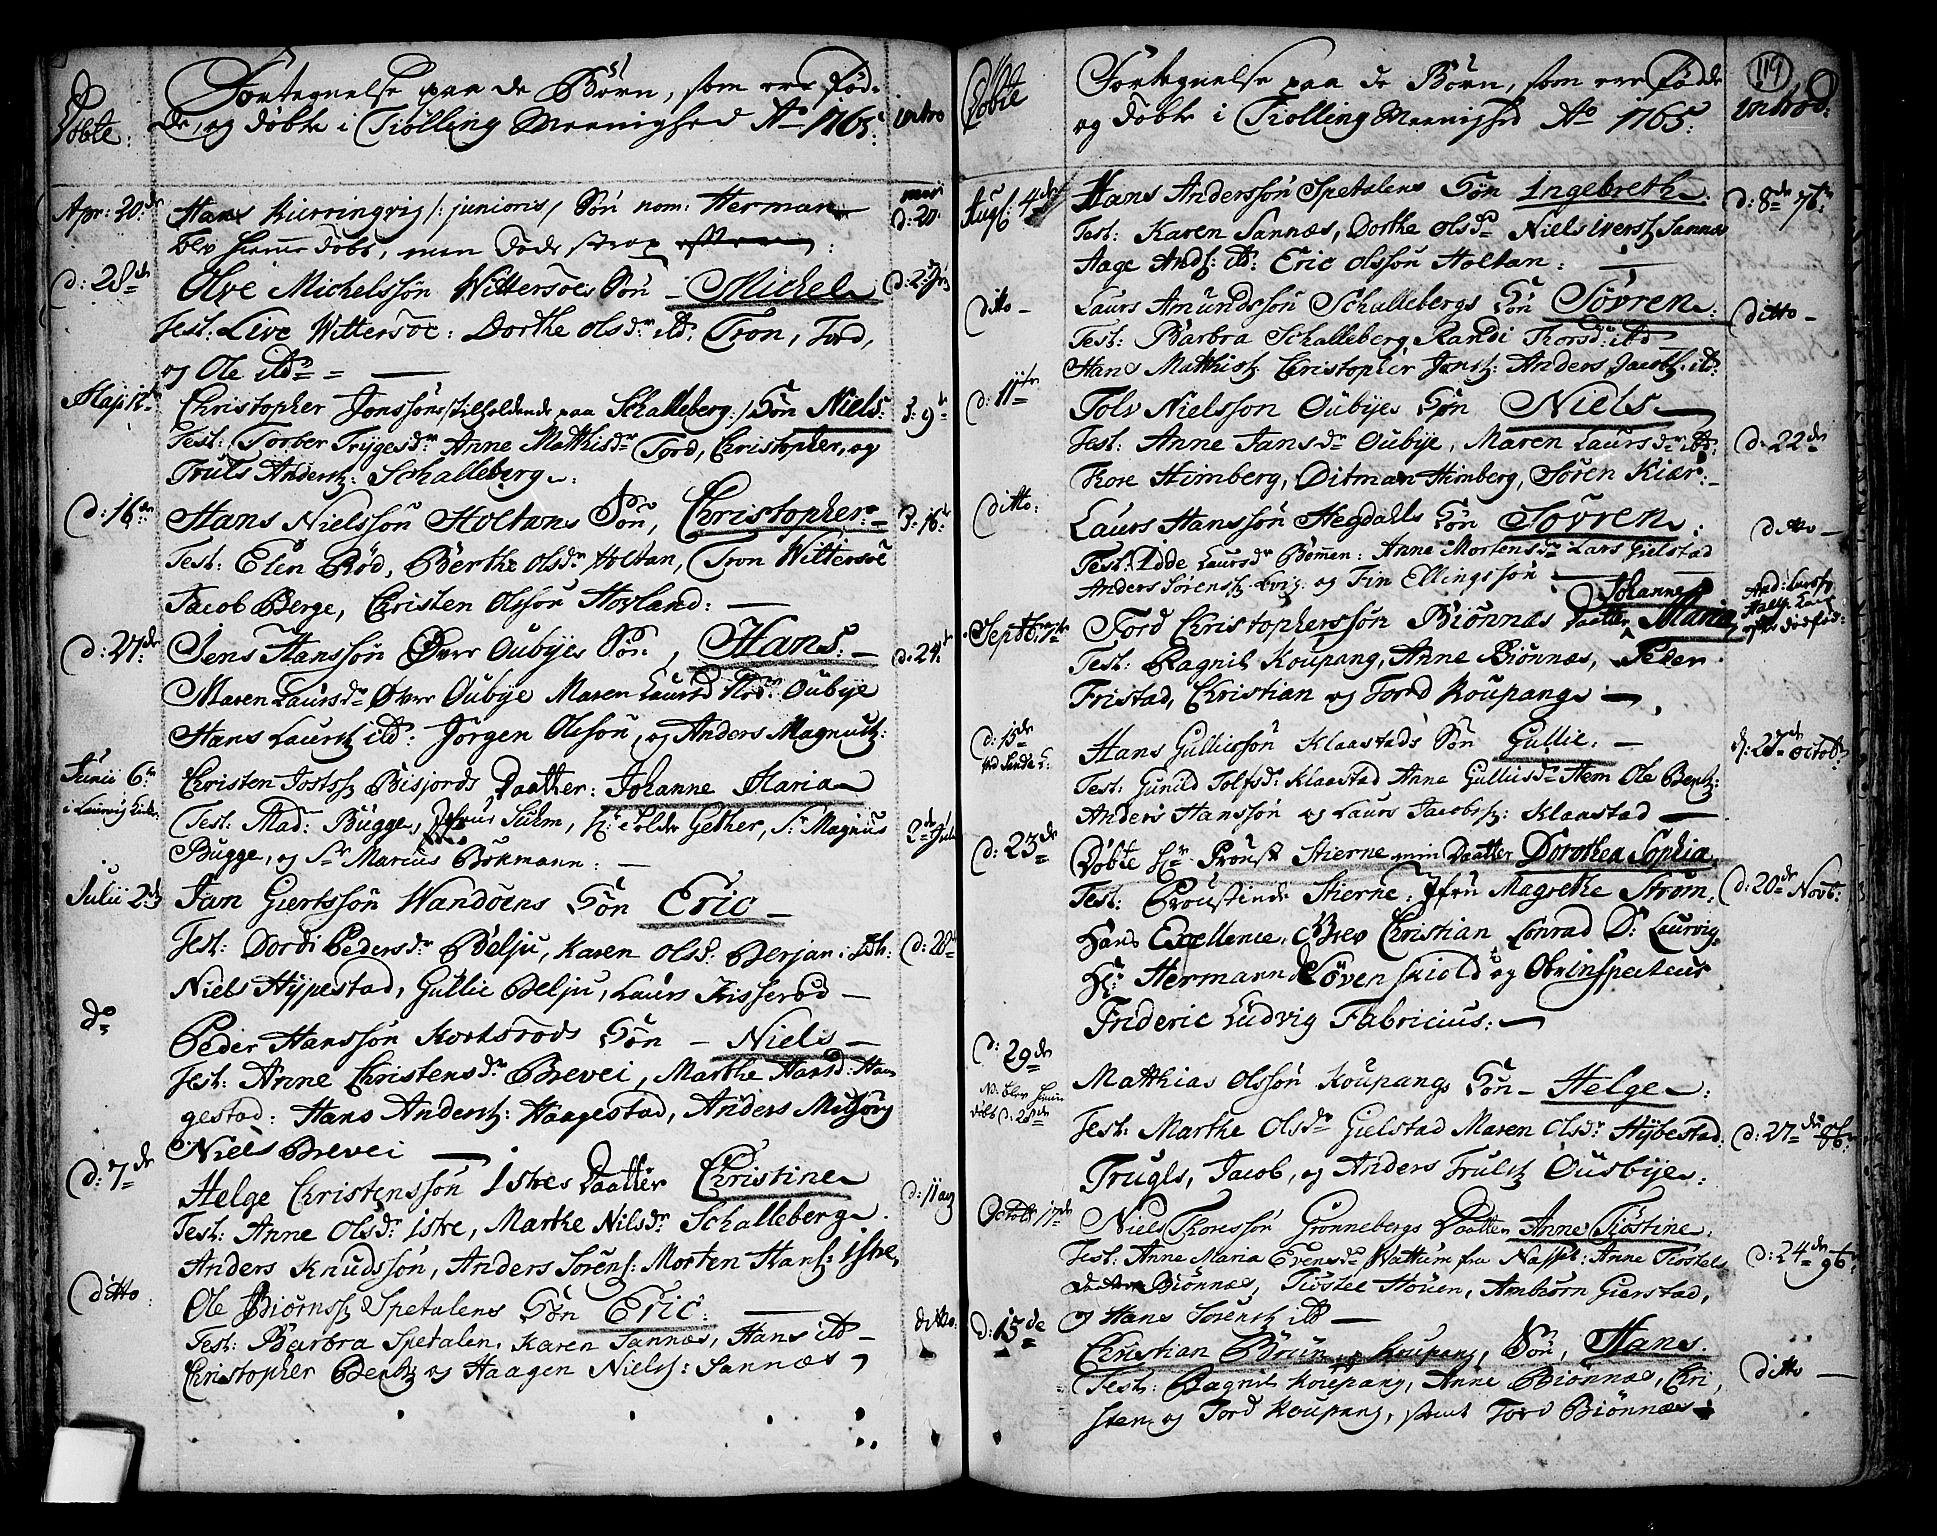 Døbte:
Fortegnelse paa de Børn, som ere fød-
de, og døbte i Tiølling Meenighed Ao 1765:
intro
Apr: 20de
Hans Kiærringvig /: junioris / Søn nom: Herman
d: 20
blev hjemme døbt, men døde strax
d: 28de
Olve Michelssøn Wittersøes Søn – Michel
Test: Live Wittersøe: Dorthe Olsdr ibd: Tron, Tord,
og Ole ibd = —
Maji 12te
Christopher Jonssøns /tilholdende paa Schalleberg:/ Søn Niels:
d: 9de
Test: Torber Trygesdr Anne Mathisdr Tord, Christopher, og
Truls Andersz: Schalleberg.
d: 16de
Hans Nielssøn Holtans Søn, Christopher: –
d: 16de
Test: Elen Rød, Berthe Olsdr Holtan, Tron Wittersøe
Jacob Berge, Christen Olssøn Hovland: —
d: 27de
Jens Hanssøn Øvre Oubyes Søn, Hans: –
d: 24de
Maren Laursdr Øvre Oubye Maren Laursd Nrd: Oubye
Hans Laursz ibd: Jørgen Olssøn, og Anders Magnusz:
Junii 6te
i Laurvig Kirke
Christen Jostss Bisjords Daatter: Johanne Maria
Test: Mad: Bugge, Jfrue Suhm, Hr: Gether, Sr Magnus
2de Julii
Bugge, og Sr Marius Bokmann: —
Julii 2de
Jan Giertssøn Wandøens Søn Eric –
Test: Dordi Pedersdr Belju, Karen Olsdr Berjan:
d: 28de
Niels Hyppestad, Gullic Belju, Laurs Tisserød –
do
Peder Hanssøn Kortsrøds Søn – Niels –
Test: Anne Christensdr Brevei, Marthe Hansd: Haa
gestad: Hans Andersz: Haagestad, Anders
Niels Brevei —
d: 7de
Helge Christenssøn Istres Daatter Christine
d: 11 aug
Test: Anne Olsdr Istre, Marthe Nilsdr Schalleberg.
Anders Knudssøn, Anders Sørens: Morten Hans: Istre,
ditto
Ole Biørnss Spetalens Søn Eric: —
ditto.
Test: Barbra Spetalen. Karen Sannæs, Hans ibd –
Christopher Bentz og Haagen Niels: Sannæs,
Døbte
Fortegnelse paa de Børn, som ere fødde
og døbte i Tiølling Meenighed Ao 1765:
119
introd:
Aug: 4de
Hans Anderssøn Spetalens Søn Ingebreth.
d: 8de
Test: Karen Sannæs, Dorthe Olsdr Niels Iversz Sannæs
Aage Ands: ibd: Eric Olssøn Holtan: —
ditto –
Laurs Amundssøn Schallebergs Søn Søvren:
ditto –
Test: Barbra Schalleberg Randi Thorsd: ibd
Hans Mathisz Christopher Jonsz: Anders Jacobz. ibd:
d: 11te
Tolv Nielssøn Oubyes Søn Niels –
Test: Anne Jansdr Oubye, Maren Laursdr ibd:
d: 22de
Tore Himberg, Ditman Himberg, Søren Kiær: –
ditto:
Laurs Hanssøn Hegdalls Søn Søvren.
ditto –
Test: Idde Laursdr Bommen: Anne Mortensdr Lars Gielstad
Anders Sørensz Lvig. og Fin Ellingssøn —
Septbr 1te
Tord Christopherssøn Biønnæs Daatter Johanne Maria,
Test: Ragnil Koupang, Anne Biønnæs, Peter
Fristad, Christian og Tord Koupang –
d: 15de
Hans Gullicssøn Klaastads Søn Gullic. –
d: 27de Octob
Test: Gunild Tolfsdr Klaastad Anne Gullicsdr Hem Ole Bentz:
Anders Hanssøn og Laurs Jacobss: Klaastad —
d: 23de
Døbte Hr Proust Stierne min Daatter Dorothea Sophia.
d: 20de Novb:
Test: Proustinde Stierne, Jfru Magrethe Strøm,
Hans Excellence, Grev Christian Conrad Dr Laurvig,
Hr: Hermann Løvenskiold og Obr inspecteur
Frideric Ludvig Fabricius: —
d: 29de
NB: blev hjem-
døbt d: 28de
Matthias Olssøn Koupangs Søn – Helge:
Test: Marthe Olsdr Gielstad Maren Olsdr Hybestad.
d: 27de
Trugls, Jacob, og Anders Trulsz Ousbye:
Octobr 13de
Niels Thoressøn Grønnebergs Daatter Anne Kiøstine.
Test: Anne Maria Evensdr Wattum fra Næsset: Anne Tiøstels
d: 24de 9b
Daatter Biønnæs, Tiøstel Houen, Ambiørn Gierstad,
og Hans Sørensz ibd —
d: 15de
Christian Brun, Koupang, Søn, Hans.
ditto –
Test: Ragnil Koupang, Anne Biønnæs, Chri
sten, og Tord Koupang, samt Tord Biønnæs